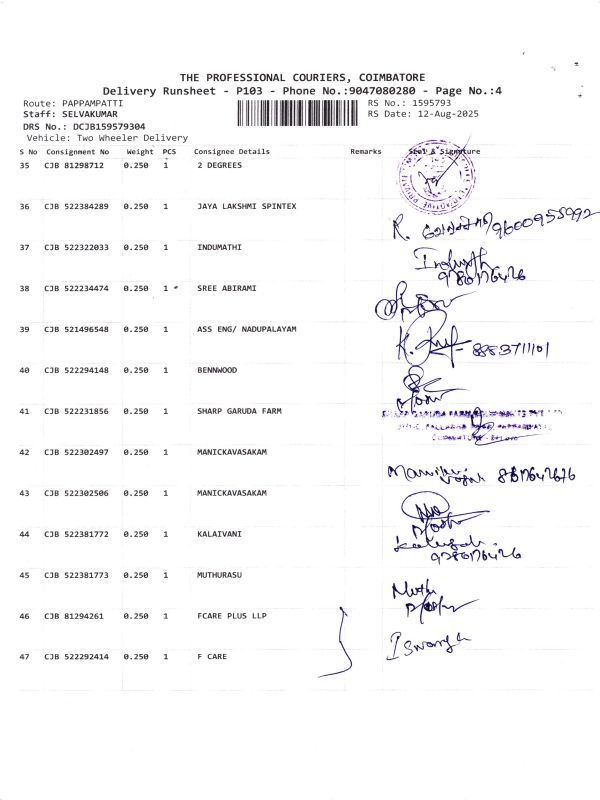 THE PROFESSIONAL COURIERS, COIMBATORE
Delivery Runsheet - P103 - Phone No.:9047080280 - Page No.:4
Route: PAPPAMPATTI RS No.: 1595793
Staff: SELVAKUMAR RS Date: 12-Aug-2025
DRS No.: DCJB159579304
Vehicle: Two Wheeler Delivery
S No Consignment No Weight PCS Consignee Details Remarks Seal & Signature
35 CJB 81298712 0.250 1 2 DEGREES
36 CJB 522384289 0.250 1 JAYA LAKSHMI SPINTEX
R. 9600955992
37 CJB 522322033 0.250 1 INDUMATHI
9780176426
38 CJB 522234474 0.250 1 SREE ABIRAMI
39 CJB 521496548 0.250 1 ASS ENG/ NADUPALAYAM
K. 8883711101
40 CJB 522294148 0.250 1 BENNWOOD
41 CJB 522231856 0.250 1 SHARP GARUDA FARM
SHARP GARUDA FARM
42 CJB 522302497 0.250 1 MANICKAVASAKAM
43 CJB 522302506 0.250 1 MANICKAVASAKAM
44 CJB 522381772 0.250 1 KALAIVANI
9780176426
45 CJB 522381773 0.250 1 MUTHURASU
Muthu
46 CJB 81294261 0.250 1 FCARE PLUS LLP
47 CJB 522292414 0.250 1 F CARE